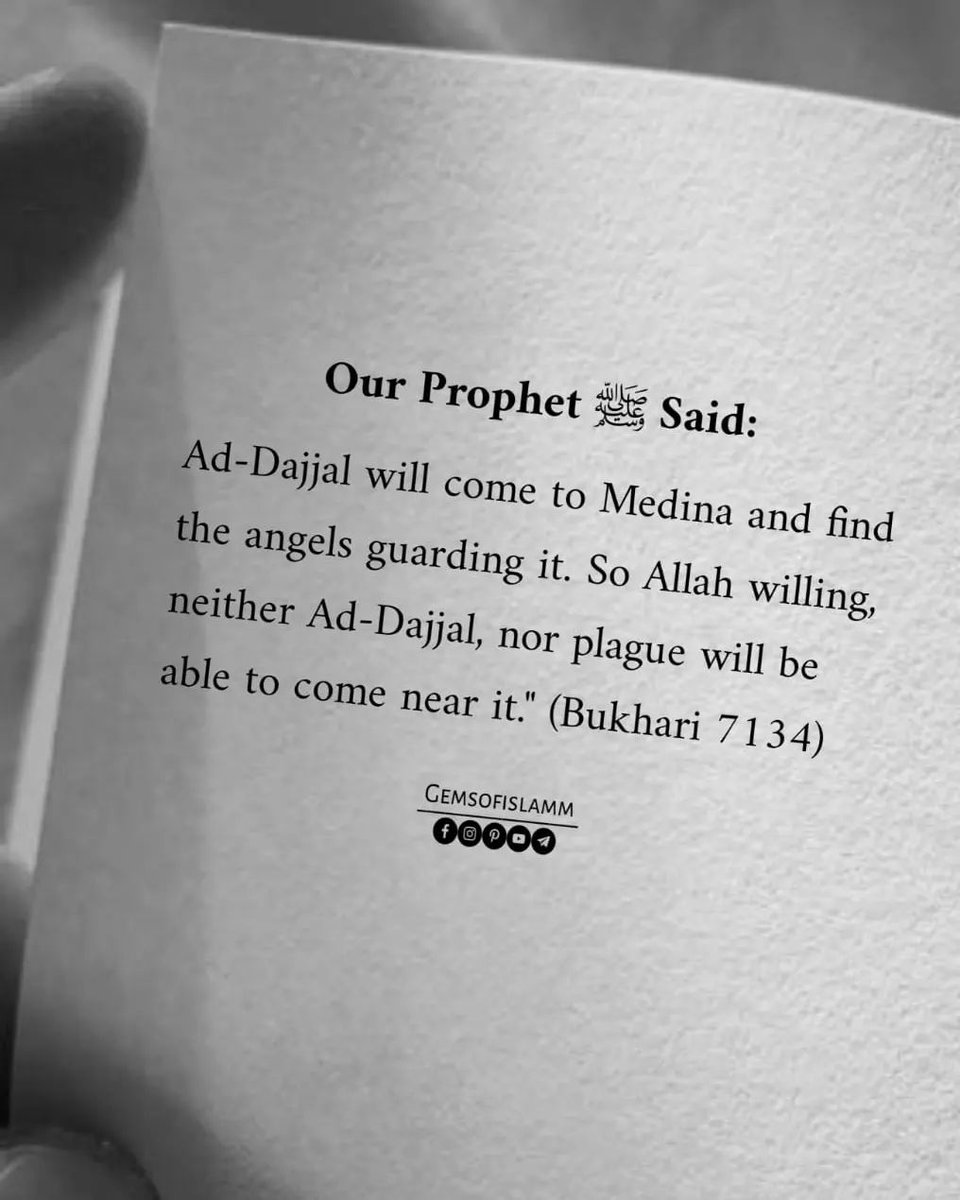 Our Prophet ﷺ Said:
Ad-Dajjal will come to Medina and find
the angels guarding it. So Allah willing,
neither Ad-Dajjal, nor plague will be
able to come near it." (Bukhari 7134)
GEMSOFISLAMM